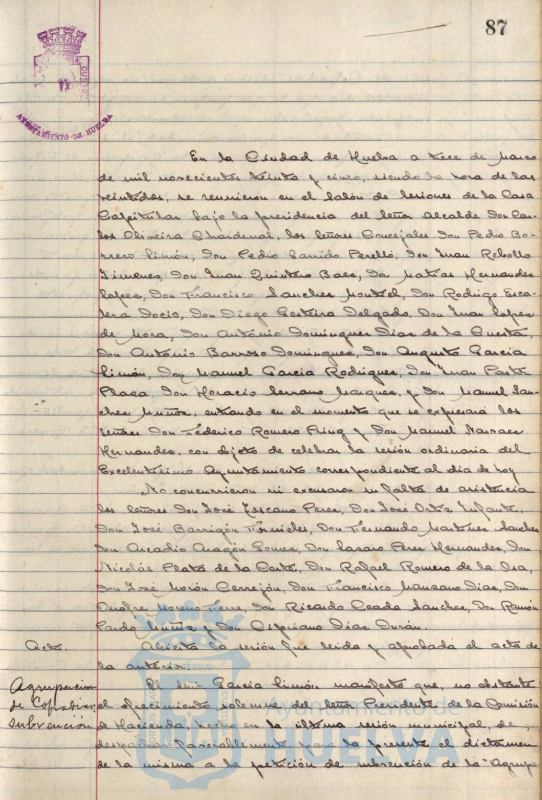 87
AYUNTAMIENTO-DE HUELVA
En la Ciudad de Huelva a trece de Marzo
de mil novecientos treinta y cinco, siendo la hora de las
veintidos, se reunieron en el Salón de Sesiones de la Casa
Capitular bajo la presidencia del Señor Alcalde Don Car-
los Oliveira Chardenal, los Señores Concejales Don Pedro Bo-
rrero Limón, Don Pedro Garrido Perelló, Don Juan Rebollo
Jimenez, Don Juan Quintero Baez, Don Matías Hernandez
Lopez, Don Francisco Sanchez Montiel, Don Rodrigo Esca-
lera Docio, Don Diego Gesteira Delgado, Don Juan Lopez
de Mora, Don Antonio Dominguez Diaz de la Cuesta,
Don Antonio Barroso Dominguez, Don Augusto Garcia
Limón, Don Manuel Garcia Rodriguez, Don Juan Pastor
Plaza, Don Horacio Serrano Marquez, y Don Manuel San-
chez Muñoz, entrando en el momento que se expresará los
Señores Don Federico Romero Pring y Don Manuel Narvaez
Hernandez, con objeto de celebrar la sesión ordinaria del
Excelentísimo Ayuntamiento correspondiente al día de hoy
No concurrieron ni excusaron su falta de asistencia
los Señores Don José Toscano Perez, Don José Ortiz Infante,
Don José Barrigón Don Fernando Martinez Sanchez
Don Arcadio Aragón Gomez, Don Lazaro Perez Hernandez, Don
Nicolás Plata de la Corte, Don Rafael Romero de la Osa,
Don José Morón Cerrejón, Don Francisco Manzano Diaz, Don
Onofre Moreno Don Ricardo Ceada Sanchez, Don Ramón
Pardo Muñiz y Don Cipriano Diaz Durán.
Acta. Abierta la sesión fue leida y aprobada el acta de
la anterior.
Agrupacion
de
subvención
El Señor Garcia Limón manifestó que, no obstante
el ofrecimiento solemne del Señor Presidente de la Comisión
de Hacienda, hecho en la última sesión municipal, de
despachar favorablemente para la presente el dictamen
de la misma a la petición de subvención de la "Agrup
Ayuntamiento de
HUELVA